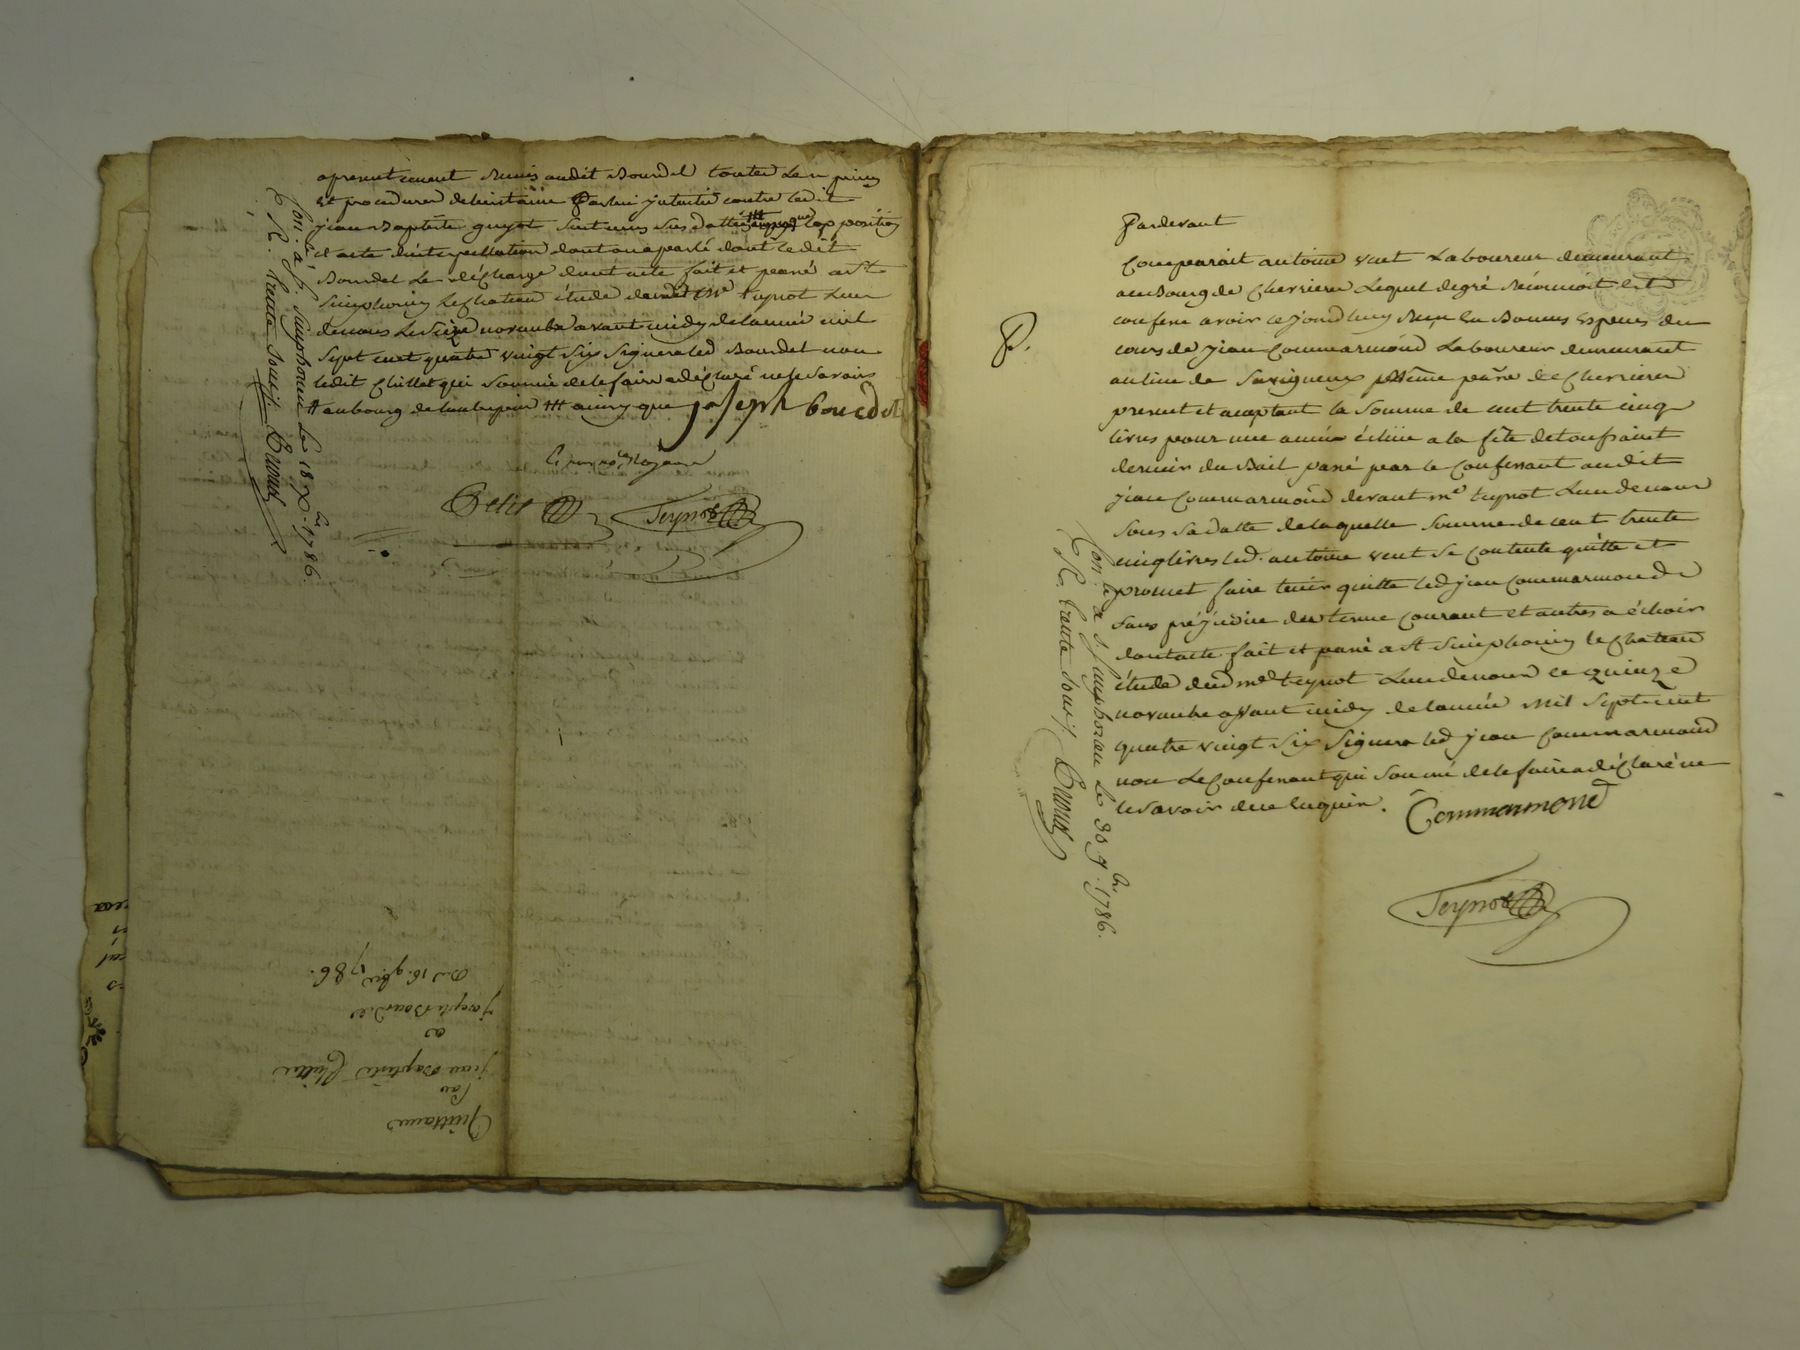 apresent remis audit Bourdel toutes les pieces
et procedures de l'instance par lui intentée contre ledit
jean Baptiste guyot sous sa datte lopposition
et acte d'interpellation dont on a parlé dont ledit
Bourdel le décharge dont acte fait et passé a St
Simphorien le chateau étude de me teynot lun
de nous le seize novembre avant midy de lannée mil
Sept cent quatre vingt Six Signera led Bourdel non
ledit Chillet qui sommé de le faire a déclaré ne le savoir
au bourg de ainsy que joseph bourdel
Teynot
Con. lé à St Simphorien le 18 9bre 1786.
R. trente sous
Quittance
Par
jean Baptiste Chillet
a
joseph Bourdel
Du 16. 9bre 1786.
Pardevant
Comparait antoine vent Laboureur demeurant
au Bourg de Chevrieres Lequel de gré reconnoit et
confesse avoir ce jourdhuy reçu en Bonnes Especes du
cours de jean Commarmond Laboureur demeurant
au lieu de Savigneux même psse de Chevrieres
present et acceptant la Somme de cent trente cinq
livres pour une année échue a la fête de toussaint
dernier du Bail passé par le Confessant audit
jean Commarmond devant me teynot Lun de nous
sous sa datte de laquelle Somme de cent trente
cinq livres led. antoine vent se contente quitte et
promet faire tenir quitte led jean Commarmond
sans préjudice du terme courant et autres a échoir
dont acte fait et passé a St Simphorien le chateau
étude dud me teynot Lun de nous ce quinze
novembre avant midy de lannée Mil Sept cent
quatre vingt Six Signera led jean Commarmond
non Le Confessant qui sommé de le faire a déclaré ne
le savoir de ce enquis. Commarmond
P.
Teynot
Con. lé a St Simphorien le 30 9bre 1786.
R. trente sous